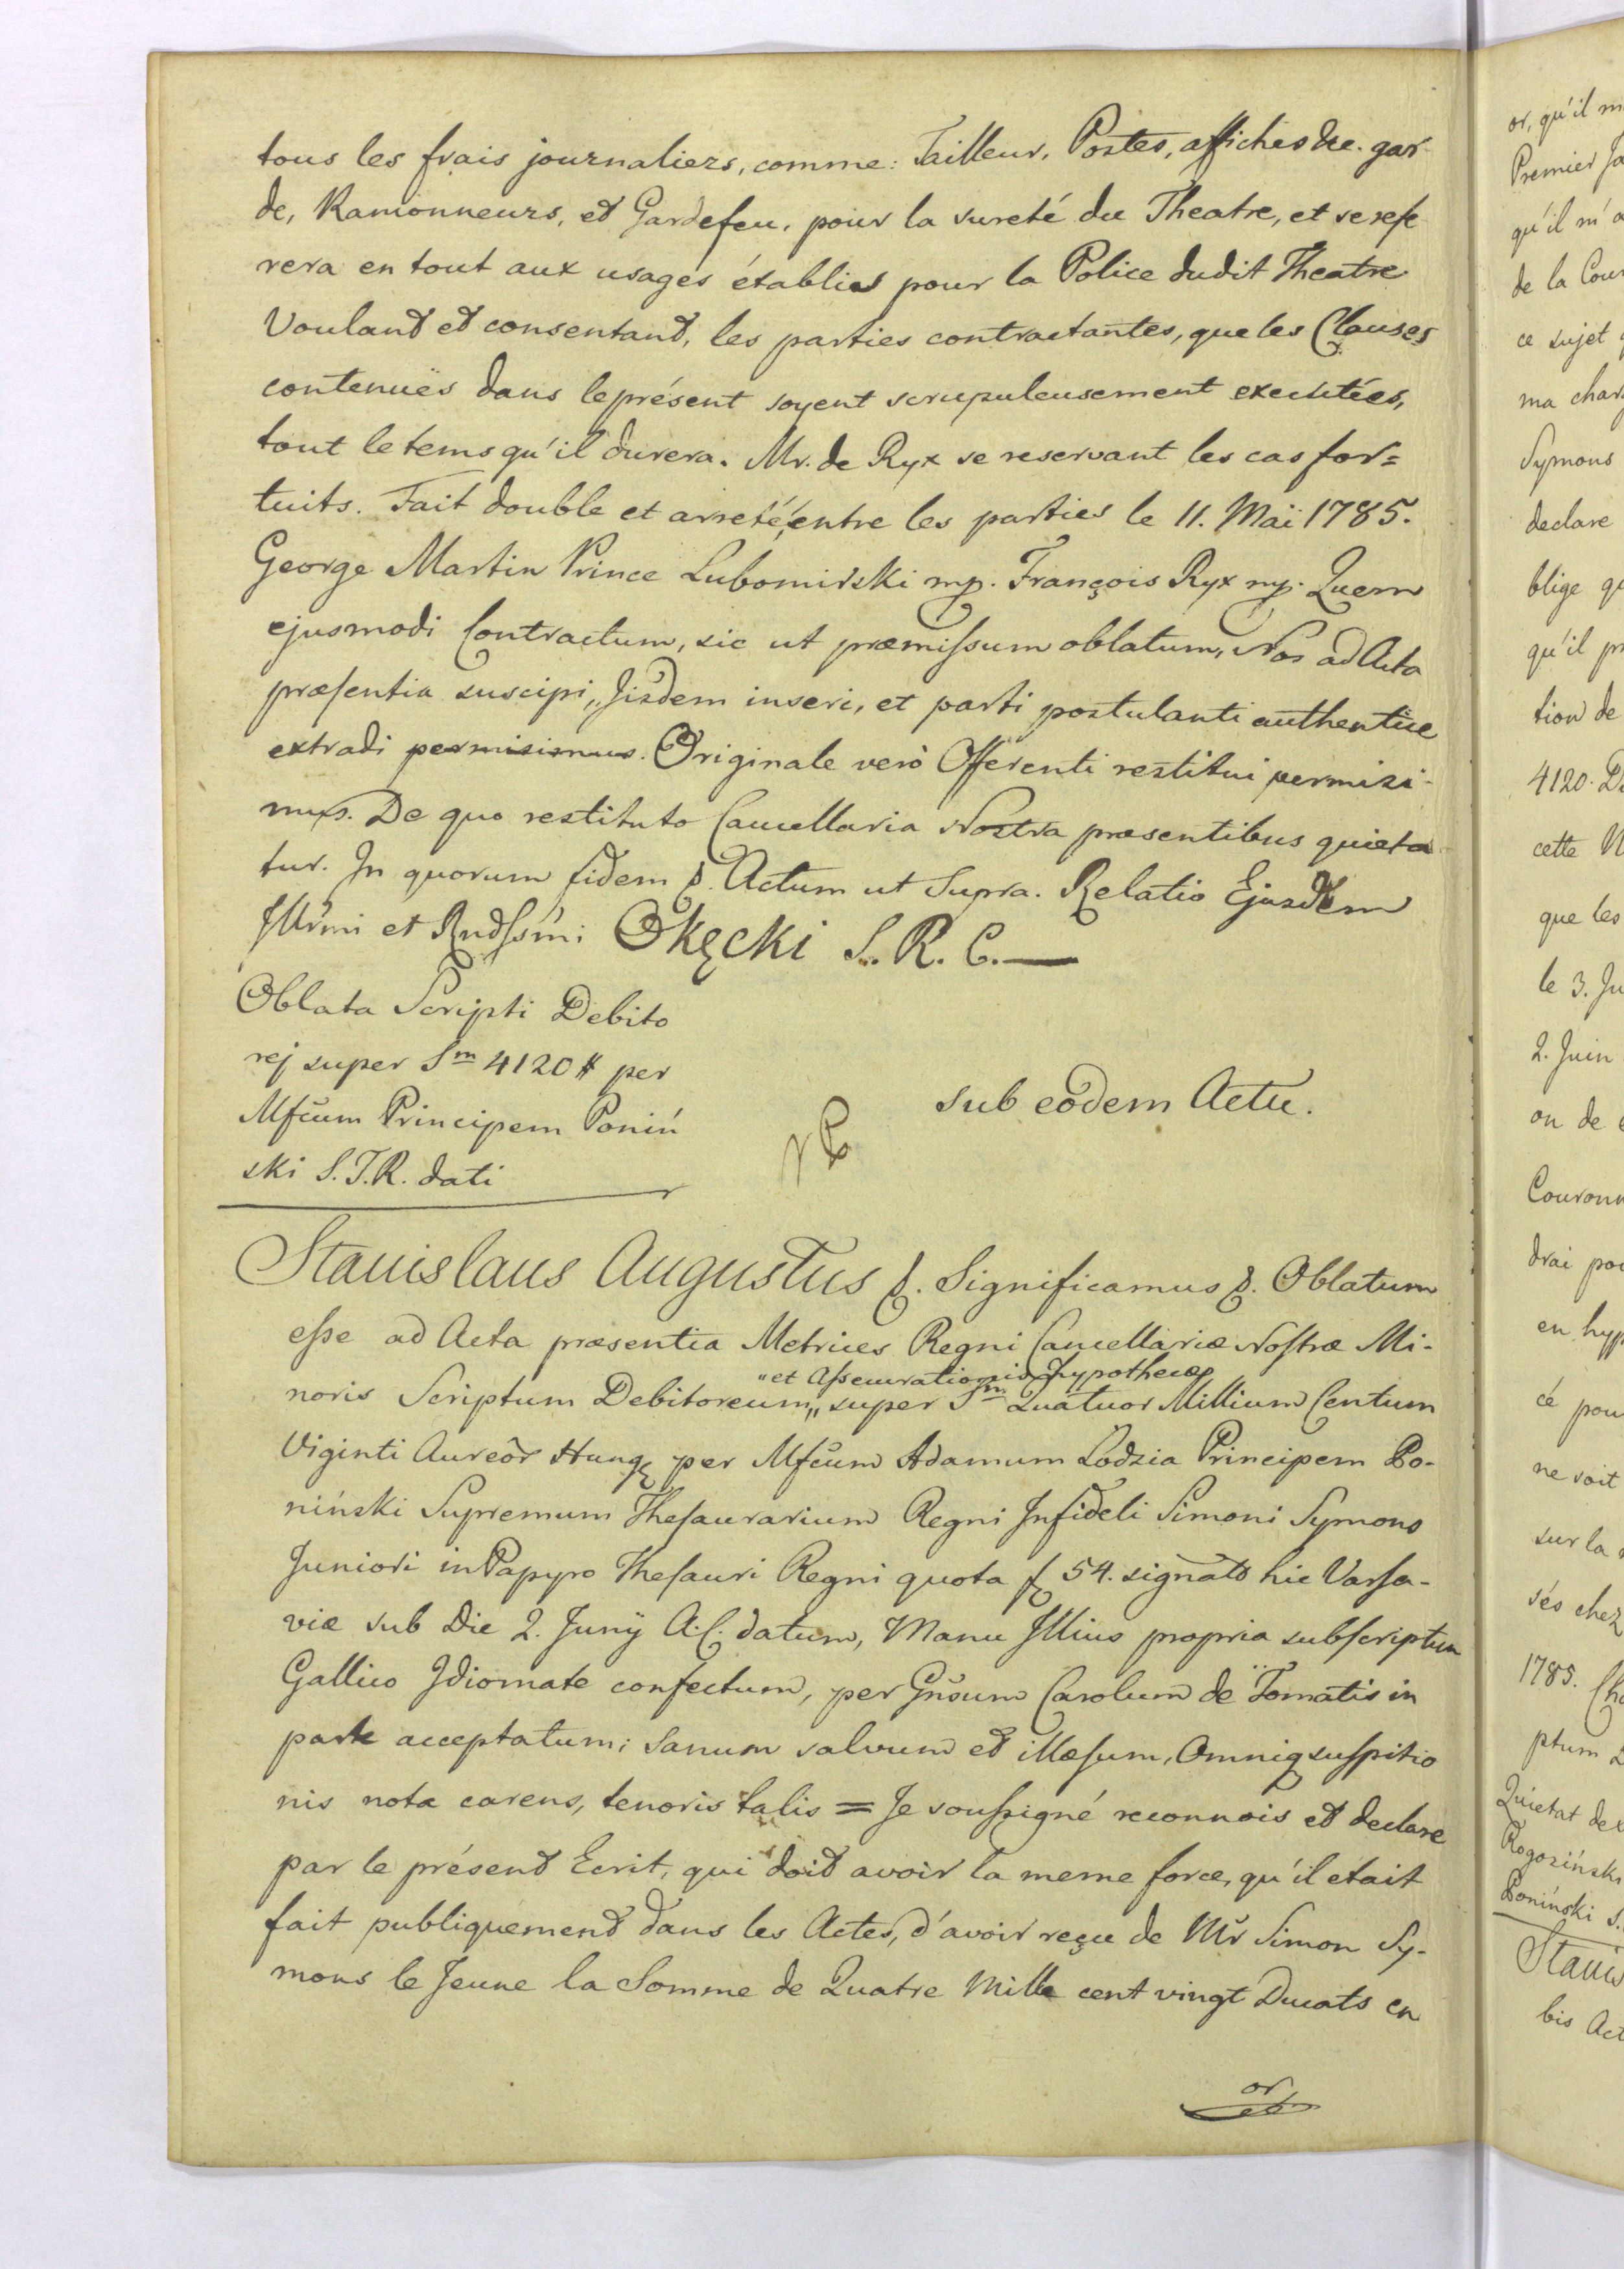 tous les frais journaliers, comme: Tailleur, Postes, affiches &c. gar
de, Ramonneurs, et Gardefeu, pour la sureté du Theatre, et se refe
rera en tout aux usages établies pour la Police dudit Theatre
Voulant et consentant, les parties contractantes, que les Clauses
contenuës dans le présent soyent scrupuleusement executées,
tout le tems qu'il durera. Mr. de Ryx se reservant les cas for=
tuits. Fait double et arreté, entre les parties le 11. Maï 1785.
George Martin Prince Lubomirski mp. François Ryx mp. Quem
ejusmodi Contractum, sic ut præmissum oblatum, Nos ad Acta
præsentia suscipi, Jisdem inseri, et parti postulanti authentice
extradi permisimus. Originale verò Offerenti restitui permisi-
mus. De quo restituto Cancellaria Nostra præsentibus quieta
tur. In quorum fidem &. Actum ut Supra. Relatio Ejusdem
Illrmi et Rndssmi Okęcki S. R. C. —
Oblata Scripti Debito
rej super Sm 4120 # per
Mfcum Principem Poniń
ski S. T. R. dati
sub eodem Actu.
Stanislaus Augustus &. Significamus &. Oblatum
esse ad Acta præsentia Metrices Regni Cancellariæ Nostræ Mi-
„et Assecurationis Hypothecæ
noris Scriptum Debitoreum„ super Sm Quatuor Millium Centum
Viginti Aureor Hung per Mfcum Adamum Lodzia Principem Po-
niński Supremum Thesaurarium Regni Infideli Simoni Symons
Juniori in Papyro Thesauri Regni quota f 54. signato hic Varsa-
viæ sub Die 2. Junÿ A. C. datum, Manu Illius propria subscriptum
Gallico Jdiomate confectum, per Gnsum Carolum de Tomatis in
parte acceptatum; sanum salvum et illæsum, Omniq suspitio
nis nota carens, tenoris talis = Je soussigné reconnois et declare
par le présent Ecrit, qui doit avoir la meme force, qu'il etait
fait publiquement dans les Actes, d'avoir reçu de Mr Simon Sy-
mons le Jeune la Somme de Quatre Mille cent vingt Ducats en
or
or, qu'il m
Premier Ja
qu'il m'a
de la Cour
ce sujet
ma char
Symons
declare
blige qu
qu'il pr
tion de
4120.
cette
que les
le 3. Ju
2. Juin
on de
Couronn
drai pou
en hyp
cé pou
ne soit
sur la
sés chez
1785. Ch
ptum
Quietat de
Rogoziński
Poniński S.
Stanis
bis Act